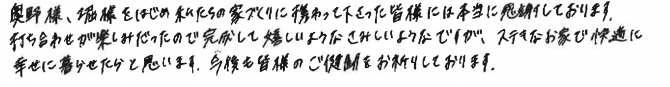 奥野様、堀様をはじめ私たちの家づくりに携わって下さった皆様には本当に感謝しております。
打ち合わせが楽しみだったので完成して嬉しいようなさみしいようなですが、ステキなお家で快適に
幸せに暮らせたらと思います。今後も皆様のご健闘をお祈りしております。